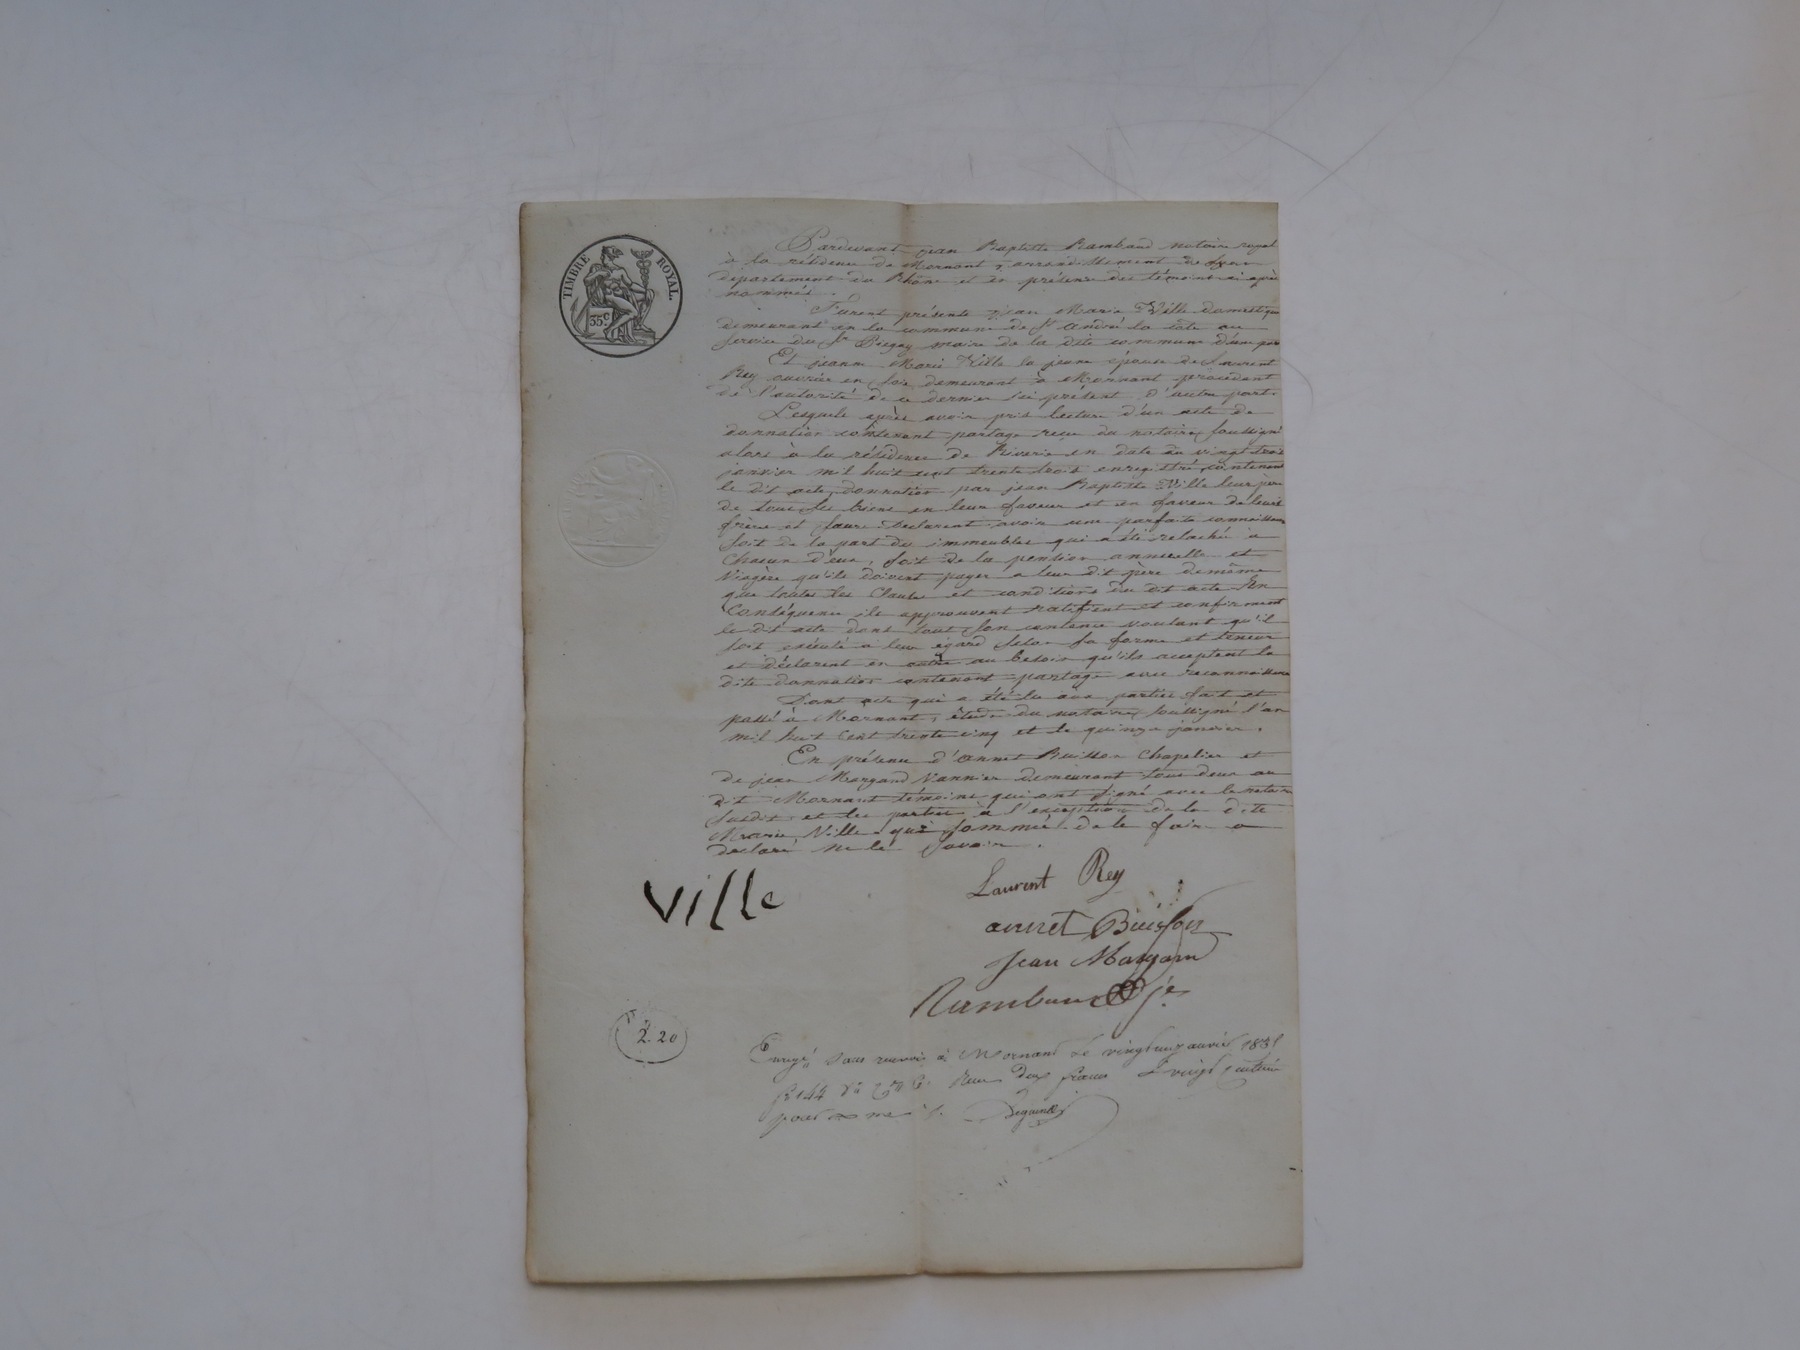 TIMBRE ROYAL.
35 c
Pardevant jean Baptiste Rambaud notaire royal
à la résidence de Mornant, arrondissement de Lyon
département du Rhône et en présence des témoins ci après
nommés.
Furent présents jean Marie Ville domestique
demeurant en la commune de St André la côte au
service du Sr maire de la dite commune d'une part
Et jeanne Marie Ville la jeune épouse de Laurent
Rey ouvrier en soie demeurant à Mornant procédant
de l'autorité de ce dernier ici présent d'autre part.
Lesquels après avoir pris lecture d'un acte de
donnation contenant partage reçu du notaire soussigné
alors à la résidence de Riverie en date du vingt trois
janvier mil huit cent trente trois enregistré, contenant
le dit acte, donnation par jean Baptiste Ville leur père
de tous ses biens en leur faveur et en faveur de leurs
frères et sœurs. Déclarent avoir une parfaite connaissance
soit de la part des immeubles qui a été relachée à
chacun d'eux, soit de la pention annuelle et
viagère qu'ils doivent payer a leur dit père de même
que toutes les clauses et conditions du dit acte En
conséquence ils approuvent ratifient et confirment
le dit acte dans tout son contenu voulant qu'il
soit exécuté à leur égard selon sa forme et teneur
et déclarent en outre au besoin qu'ils acceptent la
dite donnation contenant partage avec reconnaissance
Dont acte qui a été lu aux parties fait et
passé à Mornant, étude du notaire soussigné l'an
mil huit cent trente cinq et le quinze janvier.
En présence d'annet Buisson chapelier et
de jean Margand vannier demeurant tous deux au
dit Mornant témoins qui ont signé avec le notaire
susdit et les parties à l'exception de la dite
Marie Ville qui sommée de le faire a
déclaré ne le savoir.
Ville
Laurent Rey
annet Buisson
Jean Margam
Rambaud je
2.20
à Mornant le vingt janvier 183
fo 144 Ro Reçu deux francs vingt centimes
pour